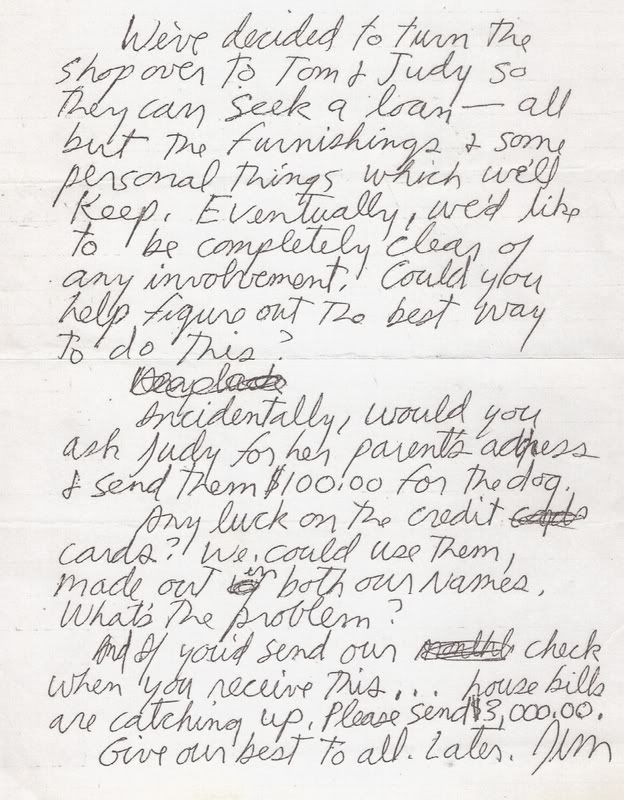 We've decided to turn the
shop over to Tom & Judy so
they can seek a loan — all
but the furnishings & some
personal things which we'll
keep. Eventually, we'd like
to be completely clear of
any involvement. Could you
help figure out the best way
to do this?
Incidentally, would you
ask Judy for her parent's address
& send them $100.00 for the dog.
Any luck on the credit
cards? We could use them,
made out in both our names.
What's the problem?
And if you'd send our check
when you receive this... house bills
are catching up. Please send $3,000.00.
Give our best to all. Later. Jim